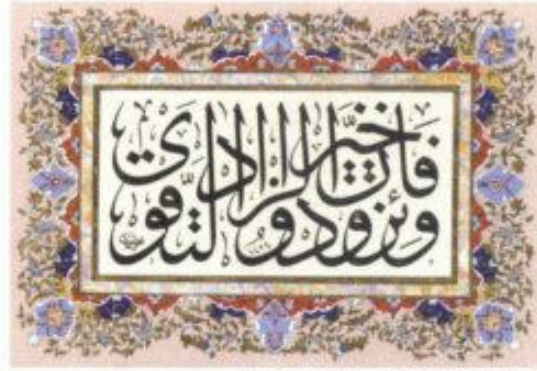 وتزودوا فان خير الزاد التقوى